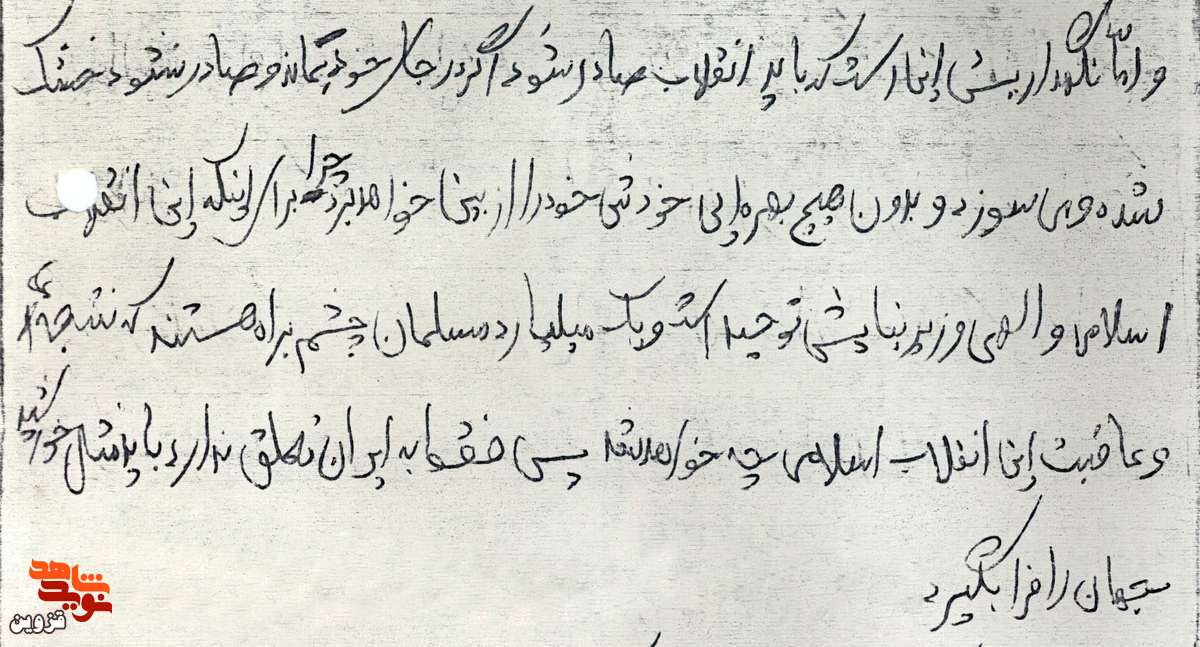 و امّا نگهداریش اینست که باید انقلاب صادر شود اگر در جای خود بماند و صادر نشود خشک
شده و می سوزد و بدون هیچ بهره ایی خودش خود را از بین خواهد برد چرا برای اینکه این انقلاب
اسلامی و الهی و زیر بنایش توحید است و یک میلیارد مسلمان چشم براه هستند که نتیجه
و عاقبت این انقلاب اسلامی چه خواهد شد پس فقط به ایران تعلق ندارد باید مثل خورشید
جهان را فرا بگیرد
نوید شاهد
قزوین